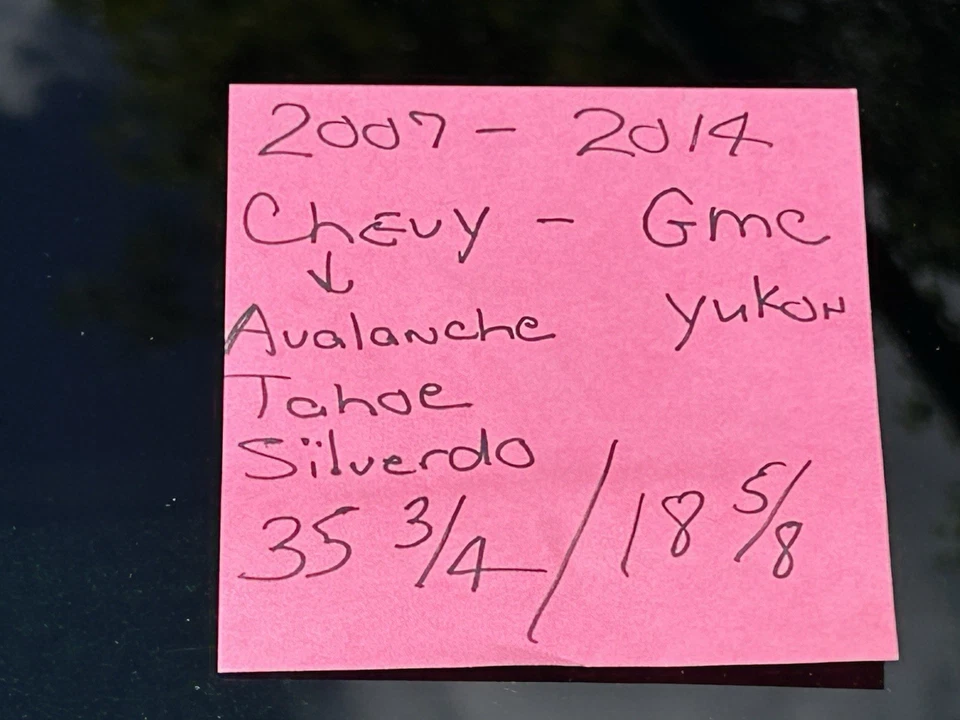 2007 - 2014
Chevy - Gmc
↓
Avalanche Yukon
Tahoe
Silverdo
35 3/4 / 18 5/8